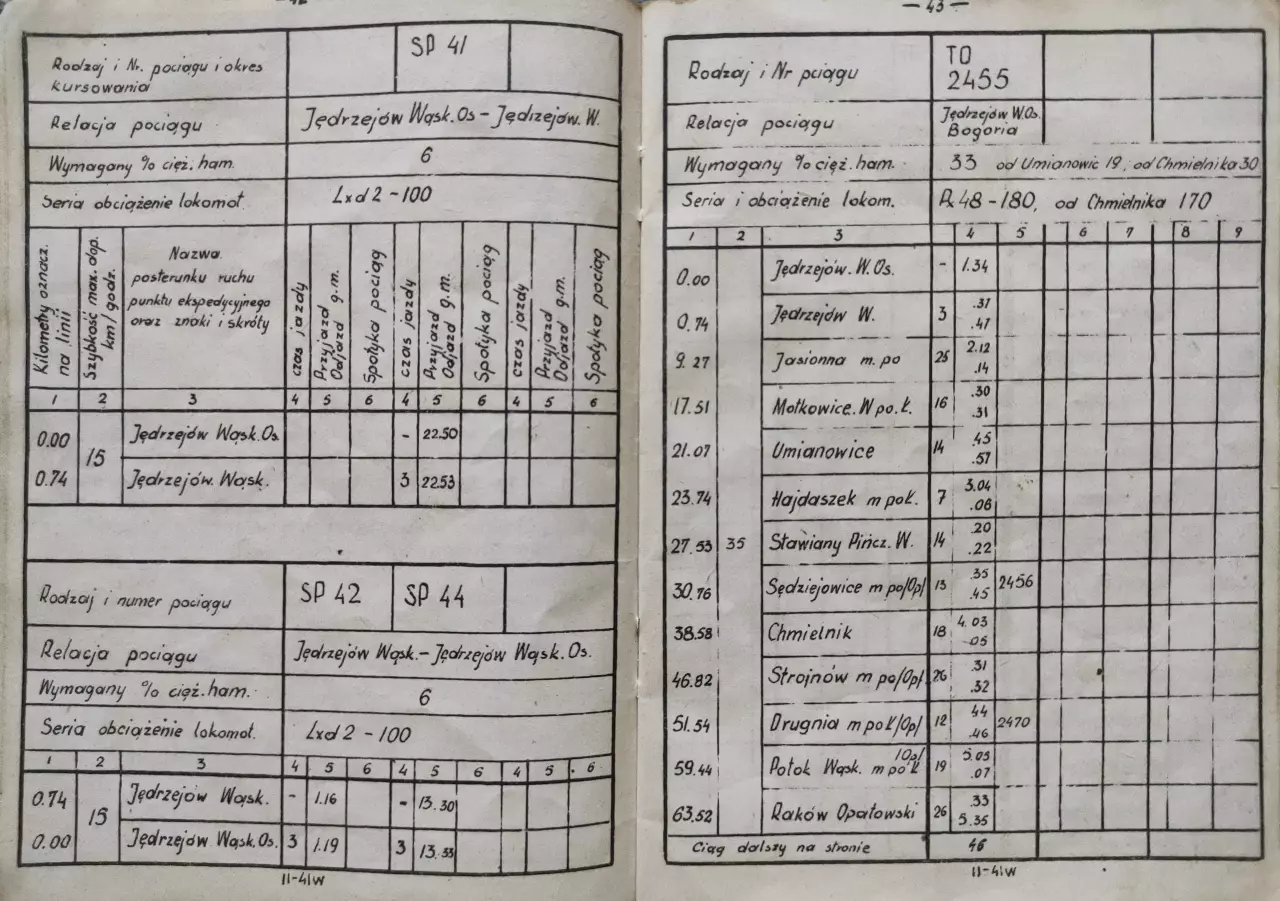 Rodzaj i Nr. pociągu i okres
kursowania
SP 41
Relacja pociągu
Jędrzejów Wąsk.Os - Jędrzejów. W.
Wymagany % cięż. ham.
6
Seria obciążenie lokomot.
Lxd 2 - 100
Kilometry oznacz. na linii
Szybkość max. dop. km/godz.
Nazwa
posterunku ruchu
punktu ekspedycyjnego
oraz znaki i skróty
czas jazdy
Przyjazd g.m.
Odjazd
Spotyka pociąg
czas jazdy
Przyjazd g.m.
Odjazd
Spotyka pociąg
czas jazdy
Przyjazd g.m.
Odjazd
Spotyka pociąg
1 2 3 4 5 6 4 5 6 4 5 6
0.00 Jędrzejów Wąsk.Os. - 22.50
15
0.74 Jędrzejów. Wąsk. 3 22.53
Rodzaj i numer pociągu
SP 42 SP 44
Relacja pociągu
Jędrzejów Wąsk.- Jędrzejów Wąsk.Os.
Wymagany % cięż.ham.
6
Seria obciążenie lokomot.
Lxd 2 - 100
1 2 3 4 5 6 4 5 6 4 5 6
0.74 Jędrzejów Wąsk. - 1.16 - 13.30
15
0.00 Jędrzejów Wąsk.Os. 3 1.19 3 13.33
II-41W
- 43 -
Rodzaj i Nr pciągu
TO
2455
Relacja pociągu
Jędrzejów W.Os.
Bogoria
Wymagany % cięż.ham.
33 od Umianowic 19, od Chmielnika 30
Seria i obciążenie lokom.
Px48 - 180, od Chmielnika 170
1 2 3 4 5 6 7 8 9
0.00 Jędrzejów. W.Os. - 1.34
0.74 Jędrzejów W. 3 .37
.47
9.27 Jasionna m.po 25 2.12
.14
17.51 Motkowice. W po.ł. 16 .30
.31
21.07 Umianowice 14 .45
.57
23.74 Hajdaszek m poł. 7 3.04
.06
27.53 35 Stawiany Pińcz. W. 14 .20
.22
30.76 Sędziejowice m po/Op/ 13 .35
.45 2456
38.58 Chmielnik 18 4.03
.05
46.82 Strojnów m po/Op/ 26 .31
.32
51.54 Drugnia m poł/Op/ 12 44
.46 2470
59.44 Potok Wąsk. m po ł /Op/ 19 5.05
.07
63.52 Raków Opatowski 26 .33
5.35
Ciąg dalszy na stronie 46
II-41W